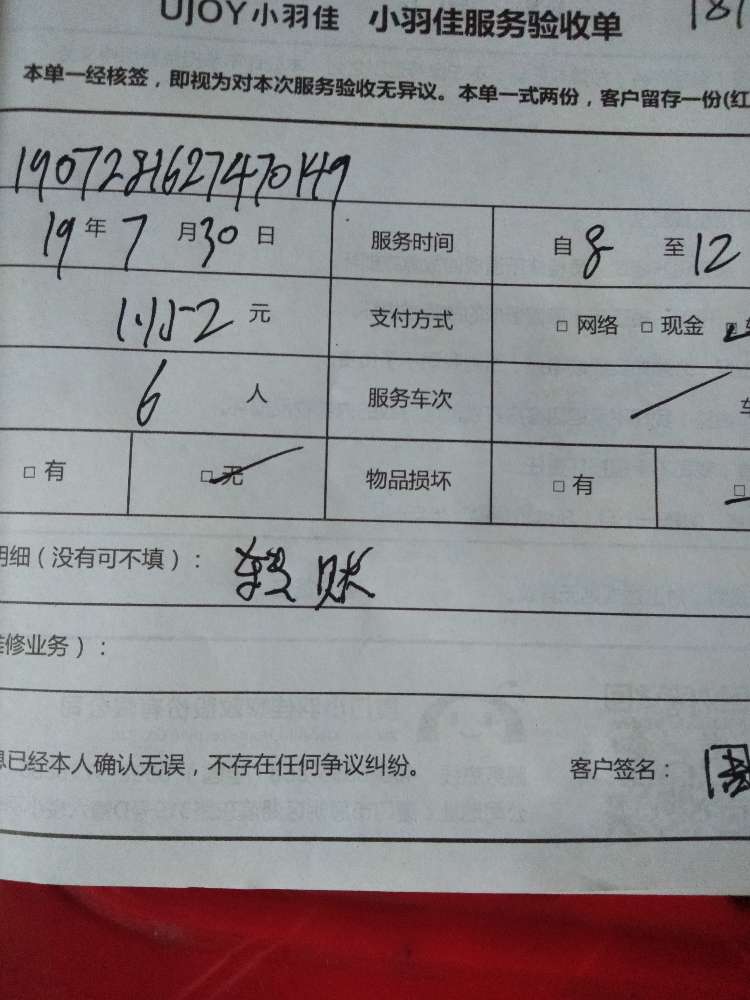 UJOY小羽佳 小羽佳服务验收单 181
本单一经核签，即视为对本次服务验收无异议。本单一式两份，客户留存一份(红
1907281627470149
19 年 7 月 30 日 服务时间 自 8 至 12
1.152 元 支付方式 □ 网络 □ 现金 □
6 人 服务车次 / 车
□ 有 □ 无 物品损坏 □ 有 □
明细（没有可不填）： 转账
修业务）：
息已经本人确认无误，不存在任何争议纠纷。 客户签名： 周